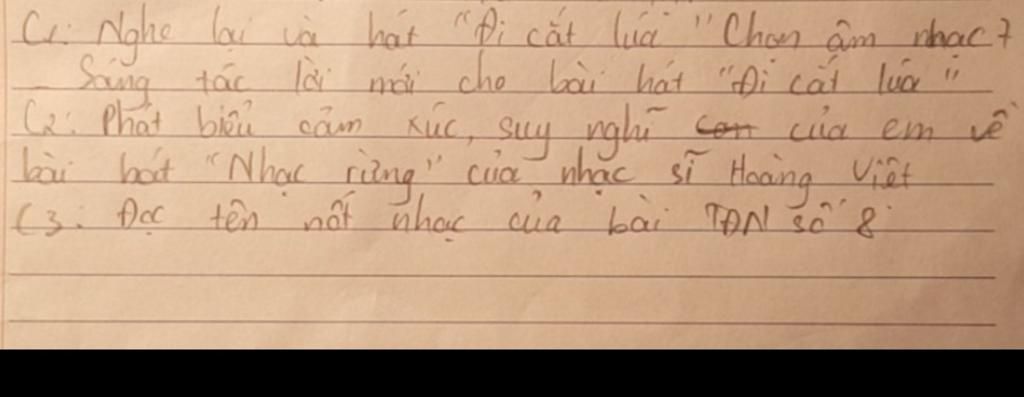 C1: Nghe lại và hát "Đi cắt lúa" Chọn âm nhạc 7
- Sáng tác lời mới cho bài hát "Đi cắt lúa"
C2: Phát biểu cảm xúc, suy nghĩ con của em về
bài hát "Nhạc rừng" của nhạc sĩ Hoàng Việt
C3: Đọc tên nốt nhạc của bài TĐN số 8